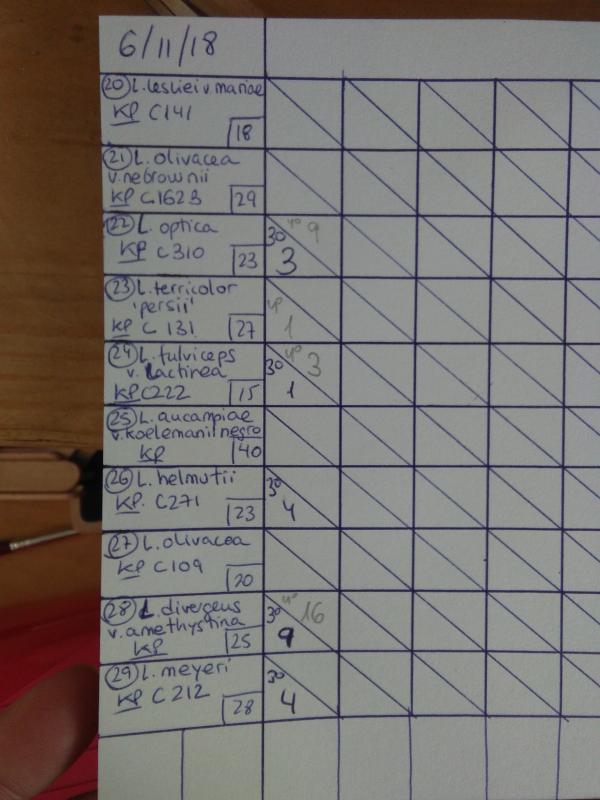 6/11/18
20 L. lesliei v. mariae
KP C141
18
21 L. olivacea
v. nebrownii
KP C162B
29
22 L. optica
KP C310
23
30 4º 9
3
23 L. terricolor
'persii'
KP C 131
27
4º
1
24 L. fulviceps
v. lactinea
KP C222
15
30 4º 3
1
25 L. aucampiae
v. koelemanii negro
KP
40
26 L. helmutii
KP. C271
23
30
4
27 L. olivacea
KP C109
20
28 L. divergeus
v. amethystina
KP
25
30 4º 16
9
29 L. meyeri
KP C212
28
30
4